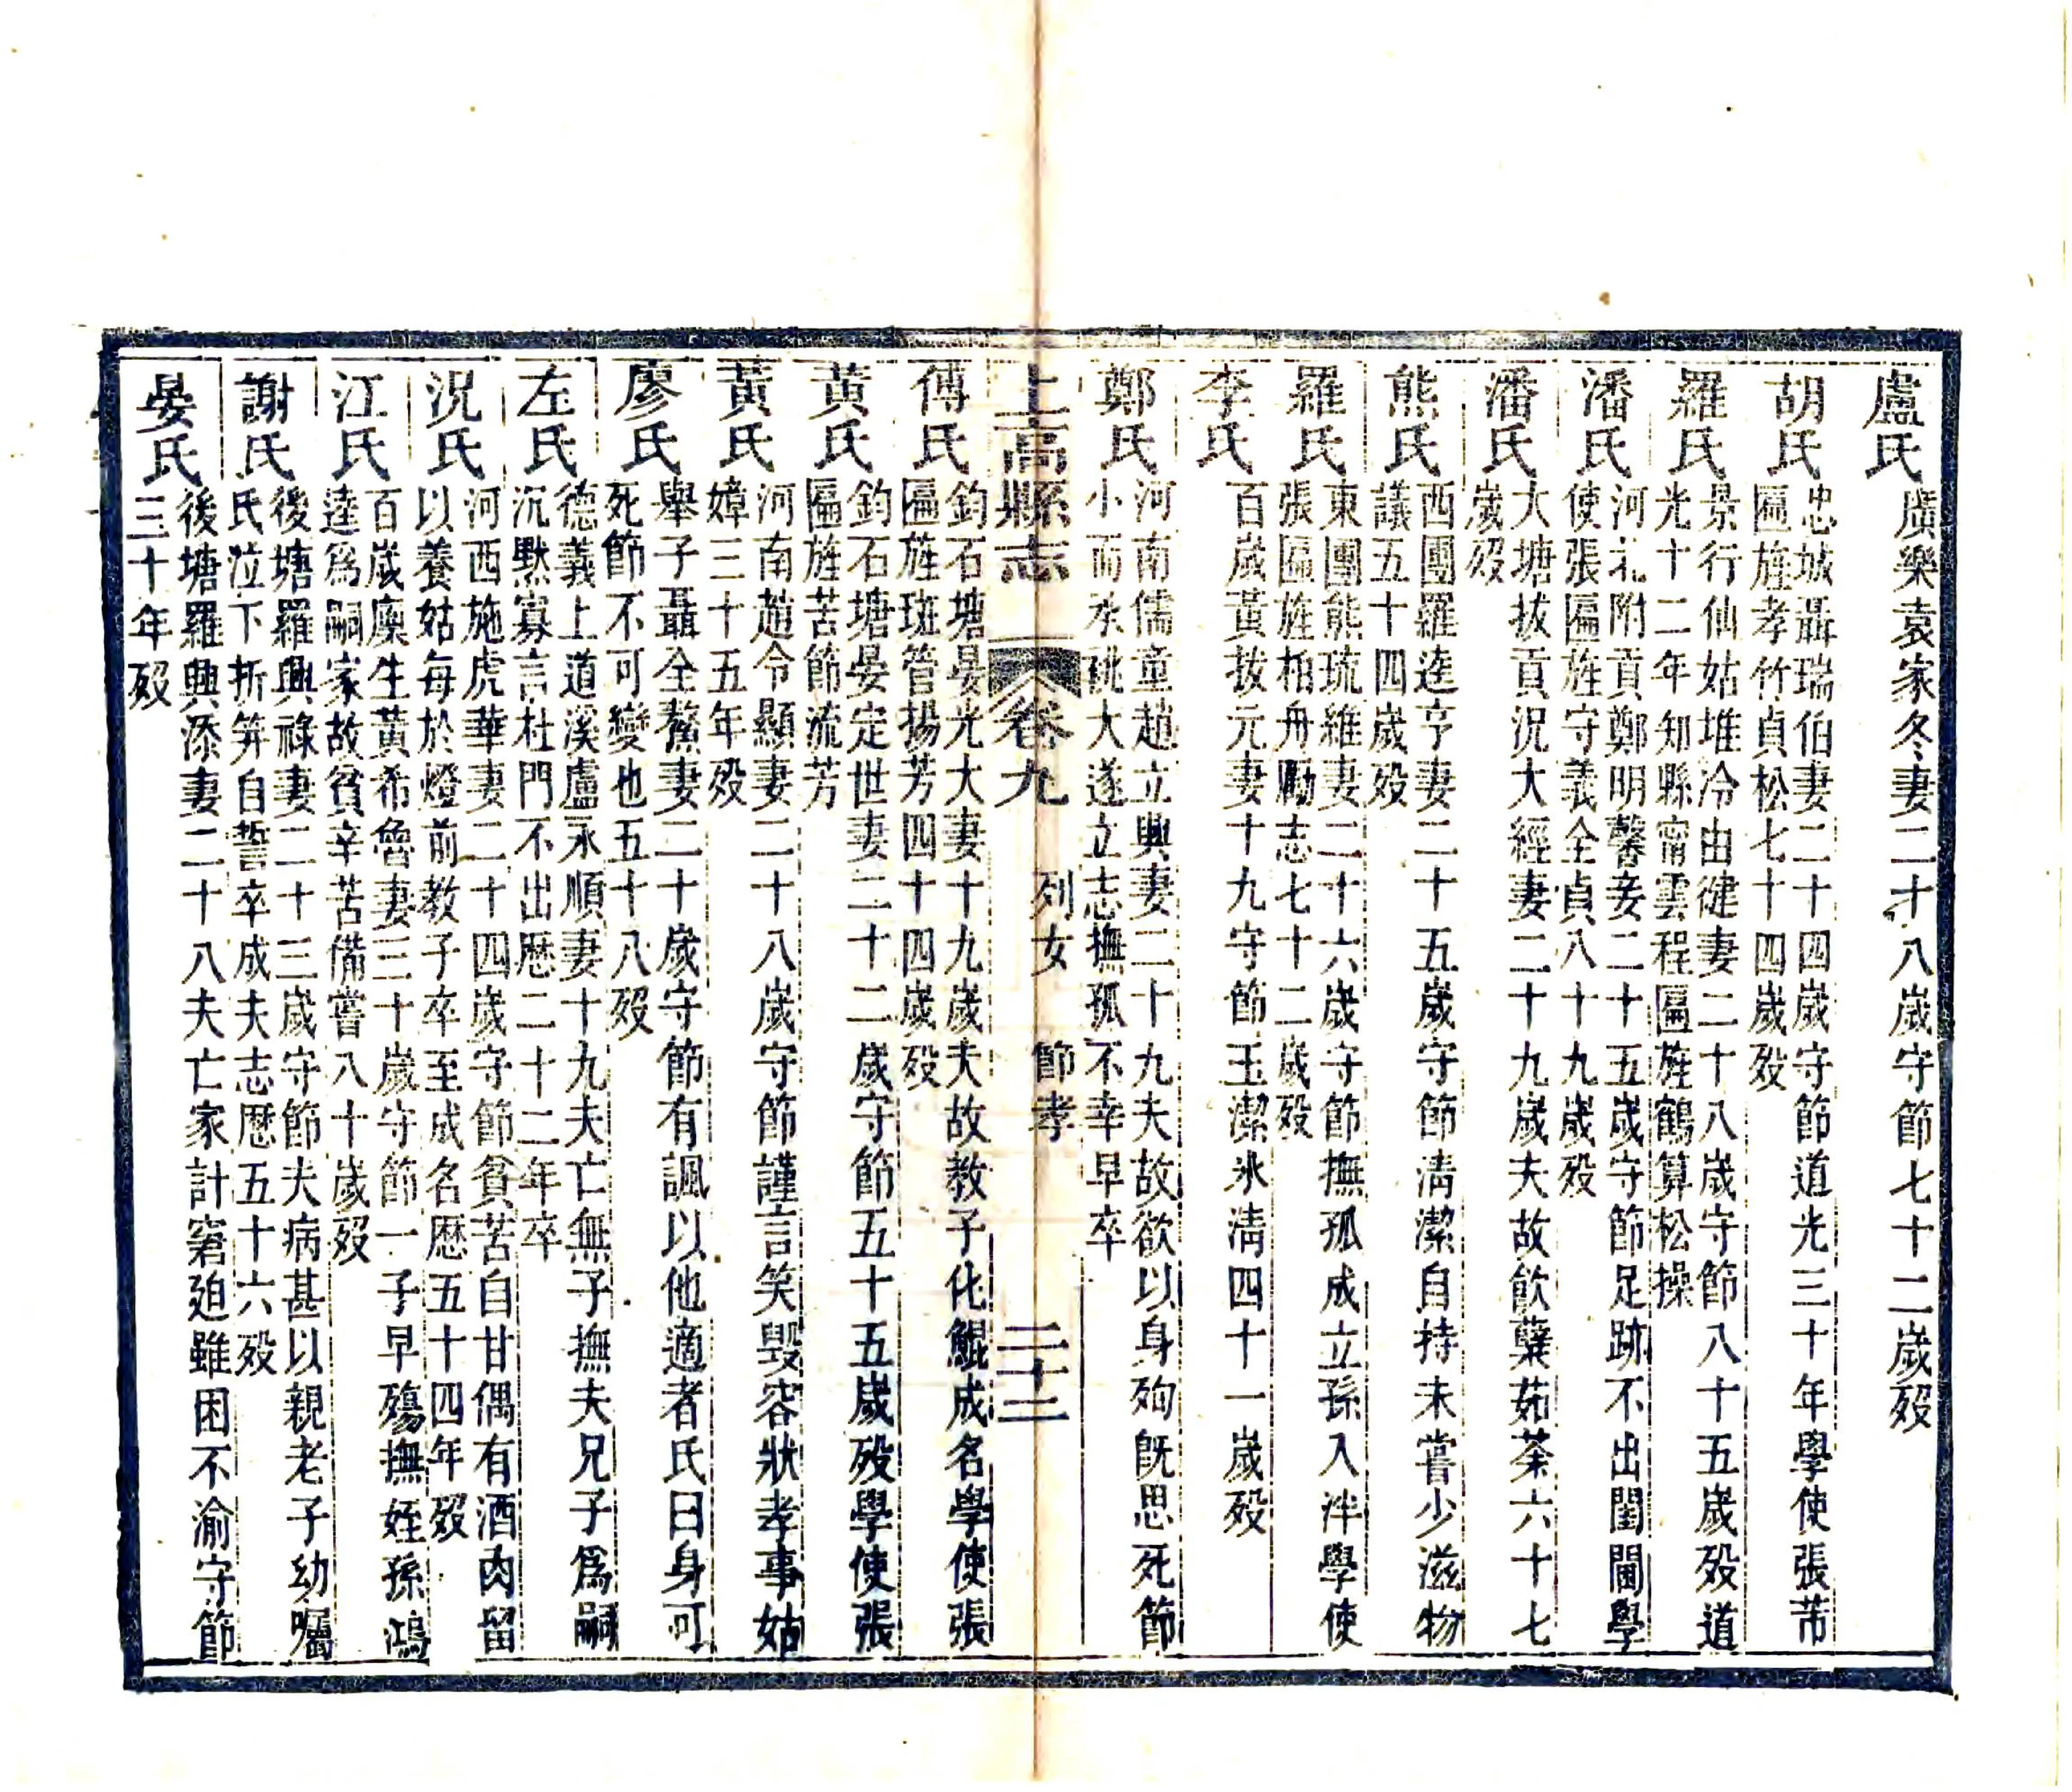 盧氏廣樂袁家冬妻二十八歲守節七十二歲歿
胡氏忠城聶瑞伯妻二十四歲守節道光三十年學使張芾
匾旌孝竹貞松七十四歲歿
羅氏景行仙姑堆冷由健妻二十八歲守節八十五歲歿道
光十二年知縣甯雲程匾旌鶴算松操
潘氏河北附貢鄭明馨妾二十五歲守節足跡不出閨閫學
使張匾旌守義全貞八十九歲歿
潘氏大塘拔貢況大經妻二十九歲夫故飲蘗茹荼六十七
歲歿
熊氏西團羅逵亨妻二十五歲守節清潔自持未嘗少滋物
議五十四歲歿
羅氏東團熊琉維妻二十六歲守節撫孤成立孫入泮學使
張匾旌柏舟勵志七十二歲歿
李氏百歲黃拔元妻十九守節玉潔氷清四十一歲歿
鄭氏河南儒童趙立興妻二十九夫故欲以身殉旣思死節
小而承祧大遂立志撫孤不幸早卒
上高縣志 卷九 列女 節孝 二十二
傅氏鈞石塘晏光大妻十九歲夫故教子化鯤成名學使張
匾旌斑管揚芳四十四歲歿
黃氏鈞石塘晏定世妻二十二歲守節五十五歲歿學使張
匾旌苦節流芳
黃氏河南趙令顯妻二十八歲守節謹言笑毀容狀孝事姑
嫜三十五年歿
廖氏舉子聶全鰲妻二十歲守節有諷以他適者氏曰身可
死節不可變也五十八歿
左氏德義上道溪盧永順妻十九夫亡無子撫夫兄子爲嗣
沉默寡言杜門不出歴二十二年卒
況氏河西施虎華妻二十四歲守節貧苦自甘偶有酒肉留
以養姑每於燈前教子卒至成名歴五十四年歿
江氏百歲廩生黃希魯妻三十歲守節一子早殤撫姪孫鴻
逵爲嗣家故貧辛苦備嘗八十歲歿
謝氏後塘羅興祿妻二十三歲守節夫病甚以親老子幼囑
氏泣下折笄自誓卒成夫志歴五十六歿
晏氏後塘羅興添妻二十八夫亡家計窘廹雖困不渝守節
三十年歿